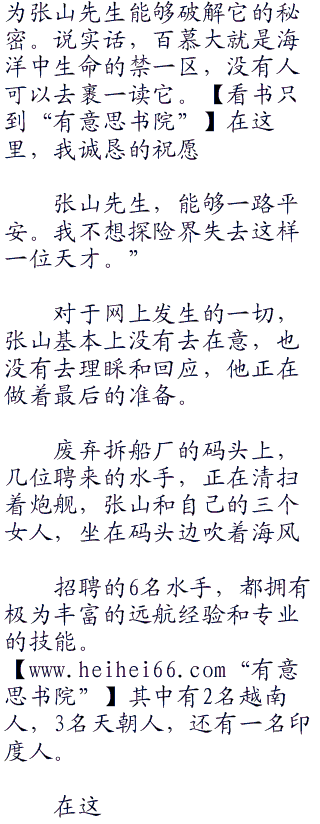 为张山先生能够破解它的秘
密。说实话，百慕大就是海
洋中生命的禁一区，没有人
可以去裹一读它。【看书只
到“有意思书院”】在这
里，我诚恳的祝愿
张山先生，能够一路平
安。我不想探险界失去这样
一位天才。”
对于网上发生的一切，
张山基本上没有去在意，也
没有去理睬和回应，他正在
做着最后的准备。
废弃拆船厂的码头上，
几位聘来的水手，正在清扫
着炮舰，张山和自己的三个
女人，坐在码头边吹着海风
招聘的6名水手，都拥有
极为丰富的远航经验和专业
的技能。
【www.heihei66.com“有意
思书院”】其中有2名越南
人，3名天朝人，还有一名印
度人。
在这